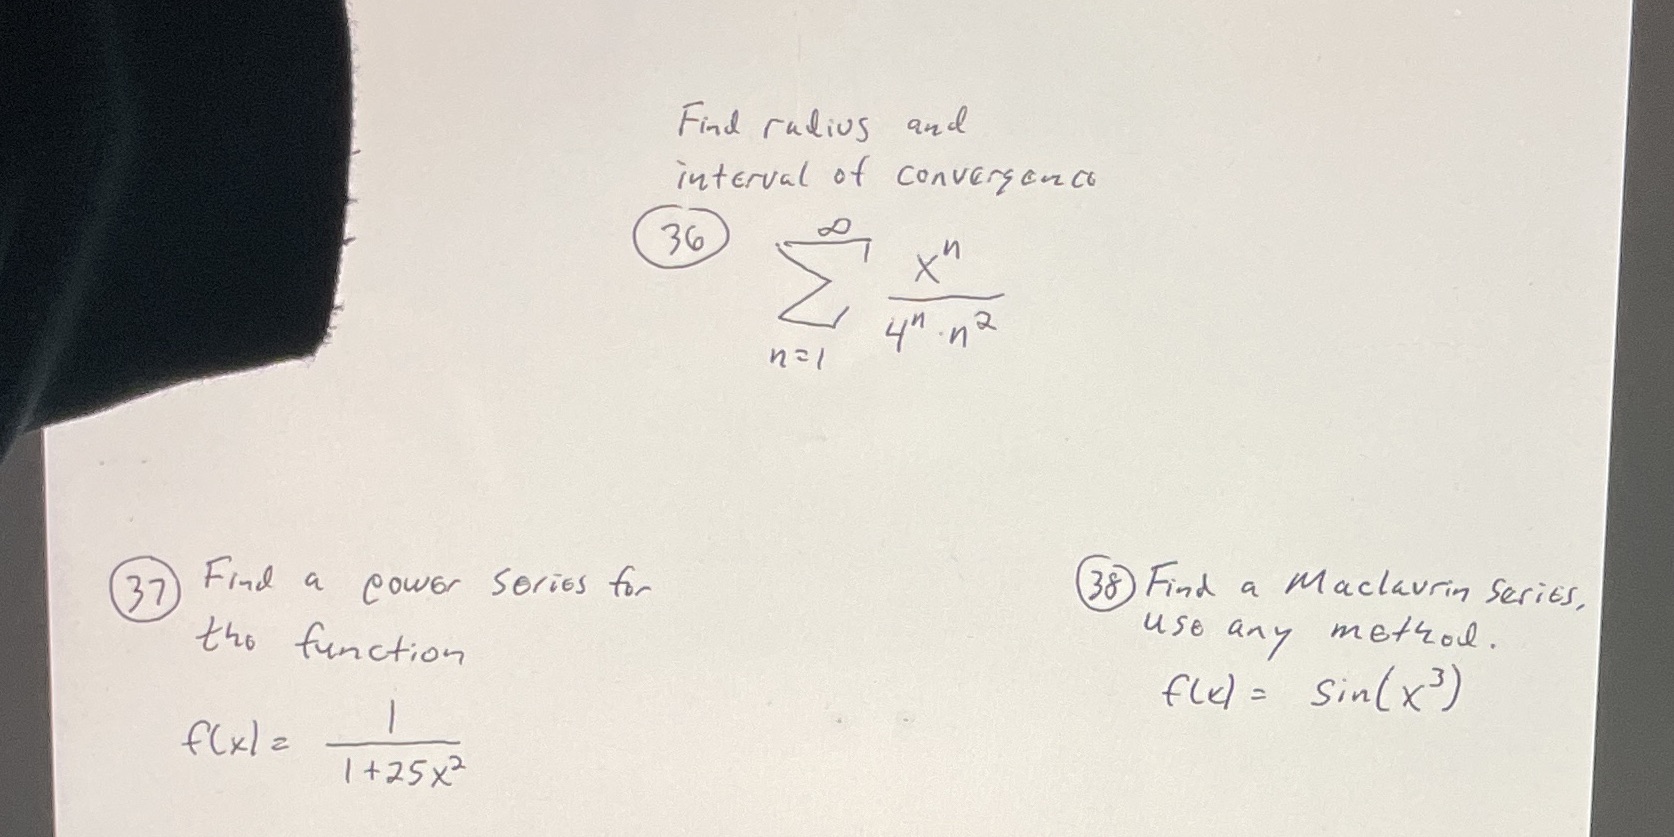 Find radius and
interval of convergence
36 ∞ ∑ n=1 xⁿ / 4ⁿ · n²
37 Find a power series for
the function
f(x) = 1 / 1+25x²
38 Find a Maclaurin series,
use any method.
f(x) = sin(x³)